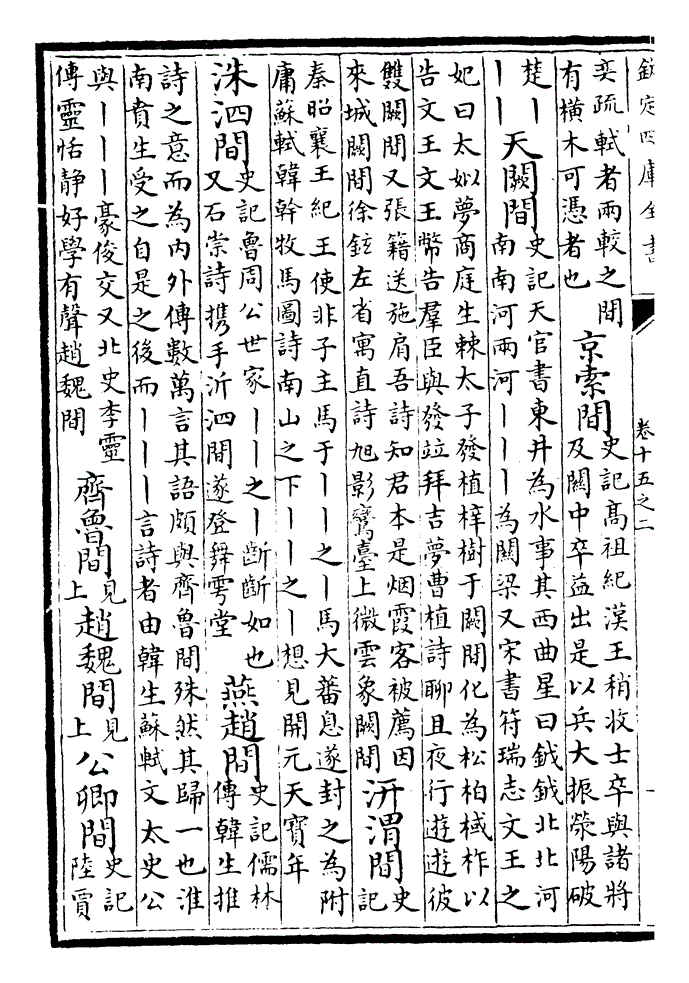 欽定四庫全書 卷十五之二
奕疏軾者兩較之間
有横木可憑者也
京索間
史記髙祖紀漢王稍收士卒與諸將
及關中卒益出是以兵大振滎陽破
楚丨
丨丨
天闕間
史記天官書東井為水事其西曲星曰鉞鉞北北河
南南河兩河丨丨丨為關梁又宋書符瑞志文王之
妃曰太姒夢商庭生棘太子發植梓樹于闕間化為松柏棫柞以
告文王文王幣告羣臣與發竝拜吉夢曹植詩聊且夜行遊遊彼
雙闕間又張籍送施肩吾詩知君本是烟霞客被薦因
來城闕間徐鉉左省寓直詩旭影鸞臺上微雲象闕間
汧渭間
史
記
秦昭襄王紀王使非子主馬于丨丨之丨馬大蕃息遂封之為附
庸蘇軾韓幹牧馬圖詩南山之下丨丨之丨想見開元天寶年
洙泗間
史記魯周公世家丨丨之丨斷斷如也
又石崇詩携手沂泗間遂登舞雩堂
燕趙間
史記儒林
傳韓生推
詩之意而為内外傳數萬言其語頗與齊魯間殊然其歸一也淮
南賁生受之自是之後而丨丨丨言詩者由韓生蘇軾文太史公
與丨丨丨豪俊交又北史李靈
傳靈恬静好學有聲趙魏間
齊魯間
見
上
趙魏間
見
上
公卿間
史記
陸賈